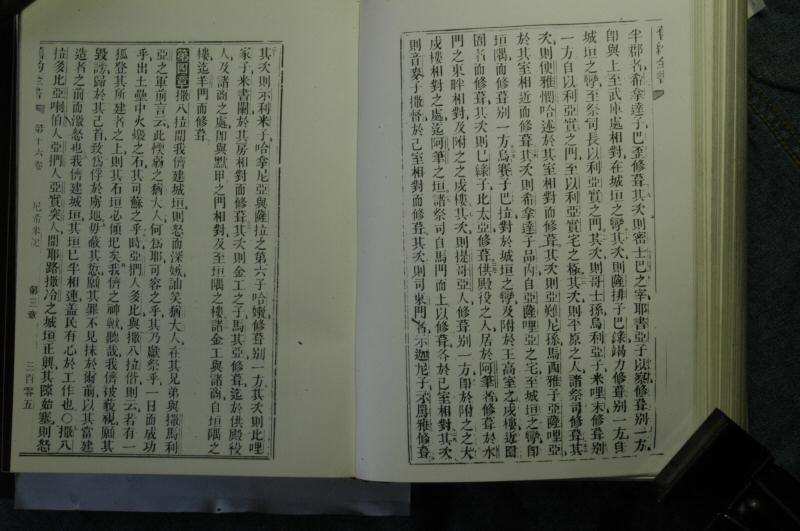 舊約全書
半郡者、希拿達子巴歪修葺、其次則密士巴之宰耶書亞子以察修葺別一方、自
卽與上至武庫處相對、在城垣之彎、其次則薩排子巴錄竭力修葺別一方、自
城垣之彎、至祭司長以利亞實之門、其次則哥士孫烏利亞子米哩末修葺別
一方、自以利亞實之門、至以利亞實宅之極、其次則平原之人、諸祭司修葺、其
次則便雅憫哈述於其室相對而修葺、其次則亞難尼孫馬西雅子亞薩哩亞
於其室相近而修葺、其次則希拿達子品內自亞薩哩亞之宅、至城垣之彎、卽
垣隅、而修葺別一方、烏賽子巴拉對於城垣之彎、及附於王高室之戍樓近囹
圄者而修葺、其次則巴錄子比太亞修葺、供殿役之人居於阿筆者、修葺於水
門之東畔相對、及附之之戍樓、其次則提哥亞人修葺別一方、卽於附之之大
戍樓相對之處、迄阿筆之垣、諸祭司自馬門而上以修葺、各於己室相對、其次
則音麥子撒督於己室相對而修葺、其次則司東門者、示迦尼子示馬雅修葺、
其次則示利米子哈拿尼亞與薩拉之第六子哈嫩修葺別一方、其次則比哩
家子米書闌於其房相對而修葺、其次則金工之子馬其亞修葺、迄於供殿役
人及諸商之處、卽與默甲之門相對、及至垣隅之樓、諸金工與諸商自垣隅之
樓、迄羊門而修葺、
第四章 撒八拉聞我儕建城垣、則怒而深嫉、訕笑猶大人、在其兄弟與撒馬利
亞之軍前言云、此懷弱之猶大人何爲耶、可容之乎、其乃獻祭乎、一日而成功
乎、出土壘中火燬之石、其可蘇之乎、時亞捫人多比與撒八拉偕、則云、若有一
狐登其所建者之上、則其石垣必傾圯矣、我儕之神歟、聽哉、我儕被藐視、願其
毀謗歸於其己首、致爲俘於虜地、毋蔽其愆、願其罪不見抹於爾前、以其當建
造者之前而激怒也、我儕建城垣、其垣已半相連、蓋民有心於工作也、○撒八
拉多比亞喇伯人亞捫人亞實突人聞耶路撒冷之城垣正興、其隙始塞、則怒
舊約全書 第十六卷 尼希米記 第三章 三百零五